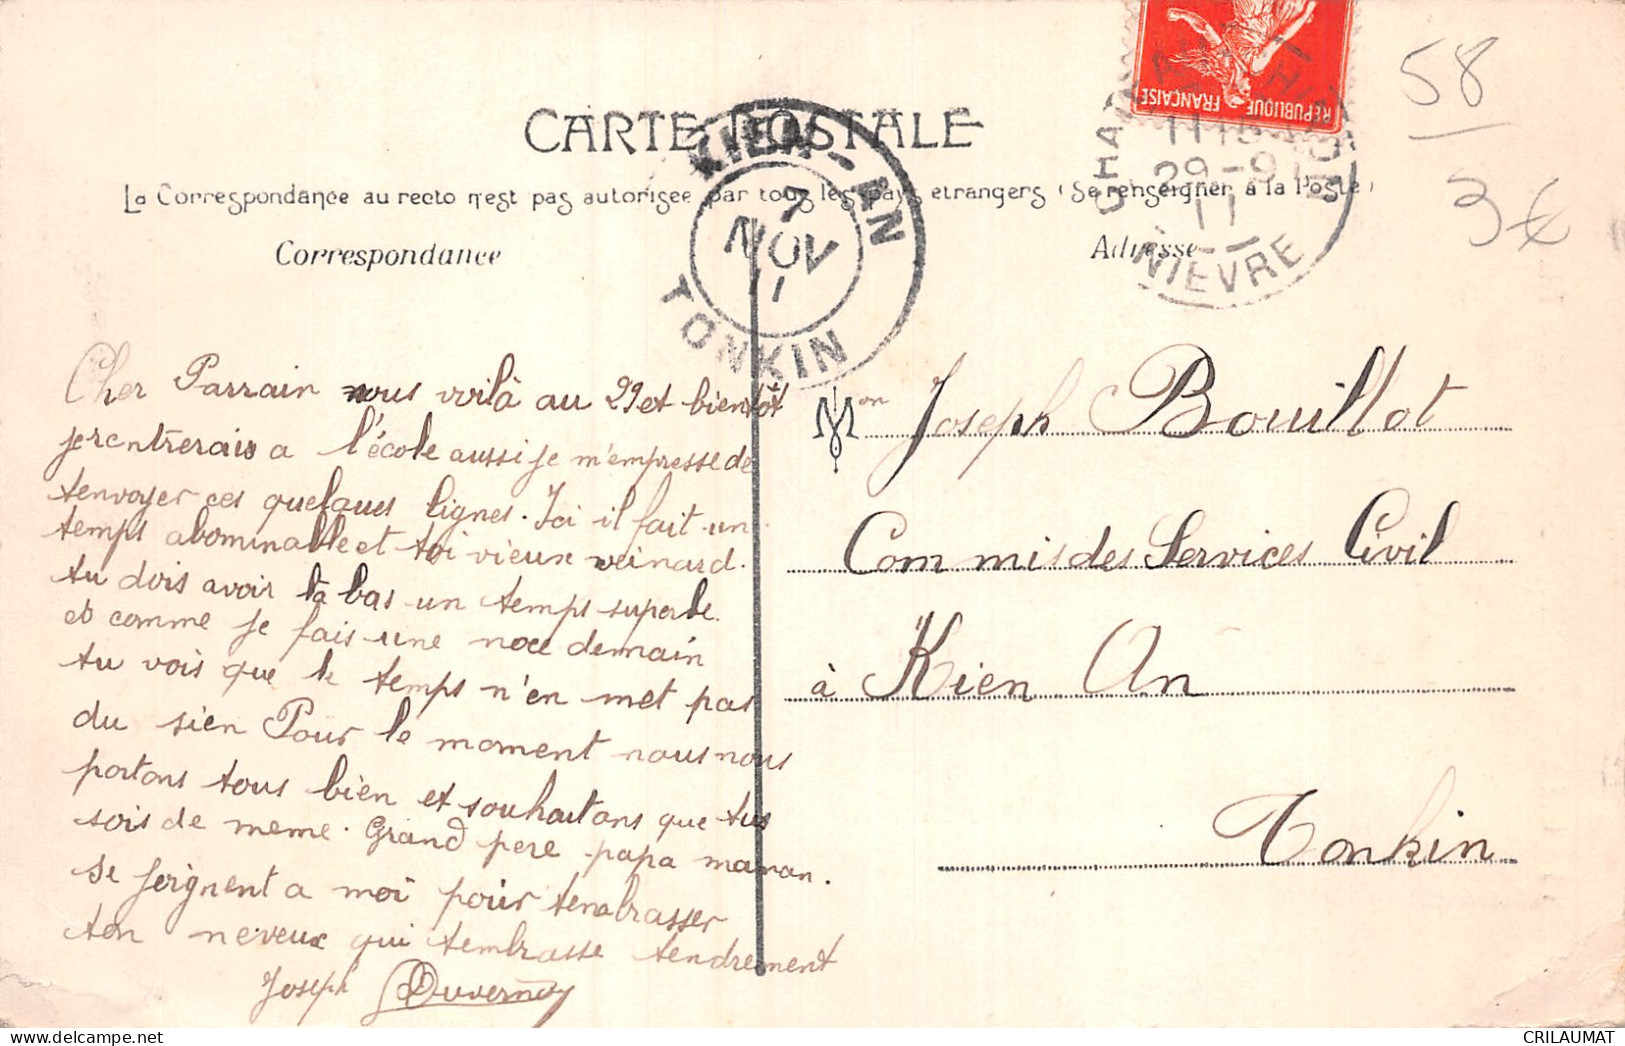 CARTE POSTALE
La Correspondance au recto n'est pas autorisée par tous les pays étrangers (Se renseigner à la Poste)
Correspondance
Adresse
REPUBLIQUE FRANÇAISE
29-9
11
NIEVRE
KIEN-AN
7
NOV
11
TONKIN
58
3€
Cher Parrain nous voilà au 29 et bientôt
je rentrerais a l'école aussi je m'empresse de
tenvoyer ces quelques lignes. Ici il fait un
temps abominable et toi vieux veinard.
tu dois avoir la bas un temps superbe
et comme je fais une noce demain
tu vois que le temps n'en met pas
du sien Pour le moment nous nous
portons tous bien et souhaitons que tu
sois de meme. Grand pere papa maman.
se joignent a moi pour tembrasser
ton neveux qui tembrasse tendrement
Joseph Duvernoy
Mon Joseph Bouillot
Commis des Services Civil
à Kien An
Tonkin
CRILAUMAT